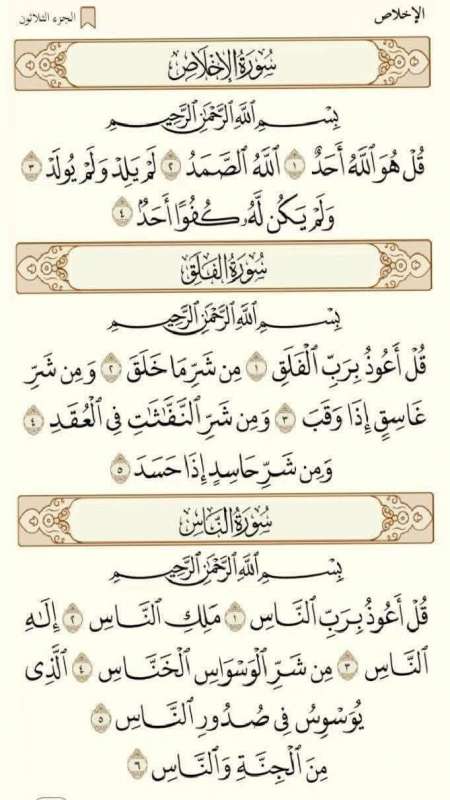 الإخلاص
الجزء الثلاثون
سُورَةُ الإِخْلَاصِ
بِسْمِ اللَّهِ الرَّحْمَٰنِ الرَّحِيمِ
قُلْ هُوَ اللَّهُ أَحَدٌ ١ اللَّهُ الصَّمَدُ ٢ لَمْ يَلِدْ وَلَمْ يُولَدْ ٣
وَلَمْ يَكُن لَّهُ كُفُوًا أَحَدٌ ٤
سُورَةُ الفَلَقِ
بِسْمِ اللَّهِ الرَّحْمَٰنِ الرَّحِيمِ
قُلْ أَعُوذُ بِرَبِّ الْفَلَقِ ١ مِن شَرِّ مَا خَلَقَ ٢ وَمِن شَرِّ
غَاسِقٍ إِذَا وَقَبَ ٣ وَمِن شَرِّ النَّفَّٰثَٰتِ فِي الْعُقَدِ ٤
وَمِن شَرِّ حَاسِدٍ إِذَا حَسَدَ ٥
سُورَةُ النَّاسِ
بِسْمِ اللَّهِ الرَّحْمَٰنِ الرَّحِيمِ
قُلْ أَعُوذُ بِرَبِّ النَّاسِ ١ مَلِكِ النَّاسِ ٢ إِلَٰهِ
النَّاسِ ٣ مِن شَرِّ الْوَسْوَاسِ الْخَنَّاسِ ٤ الَّذِي
يُوَسْوِسُ فِي صُدُورِ النَّاسِ ٥
مِنَ الْجِنَّةِ وَالنَّاسِ ٦